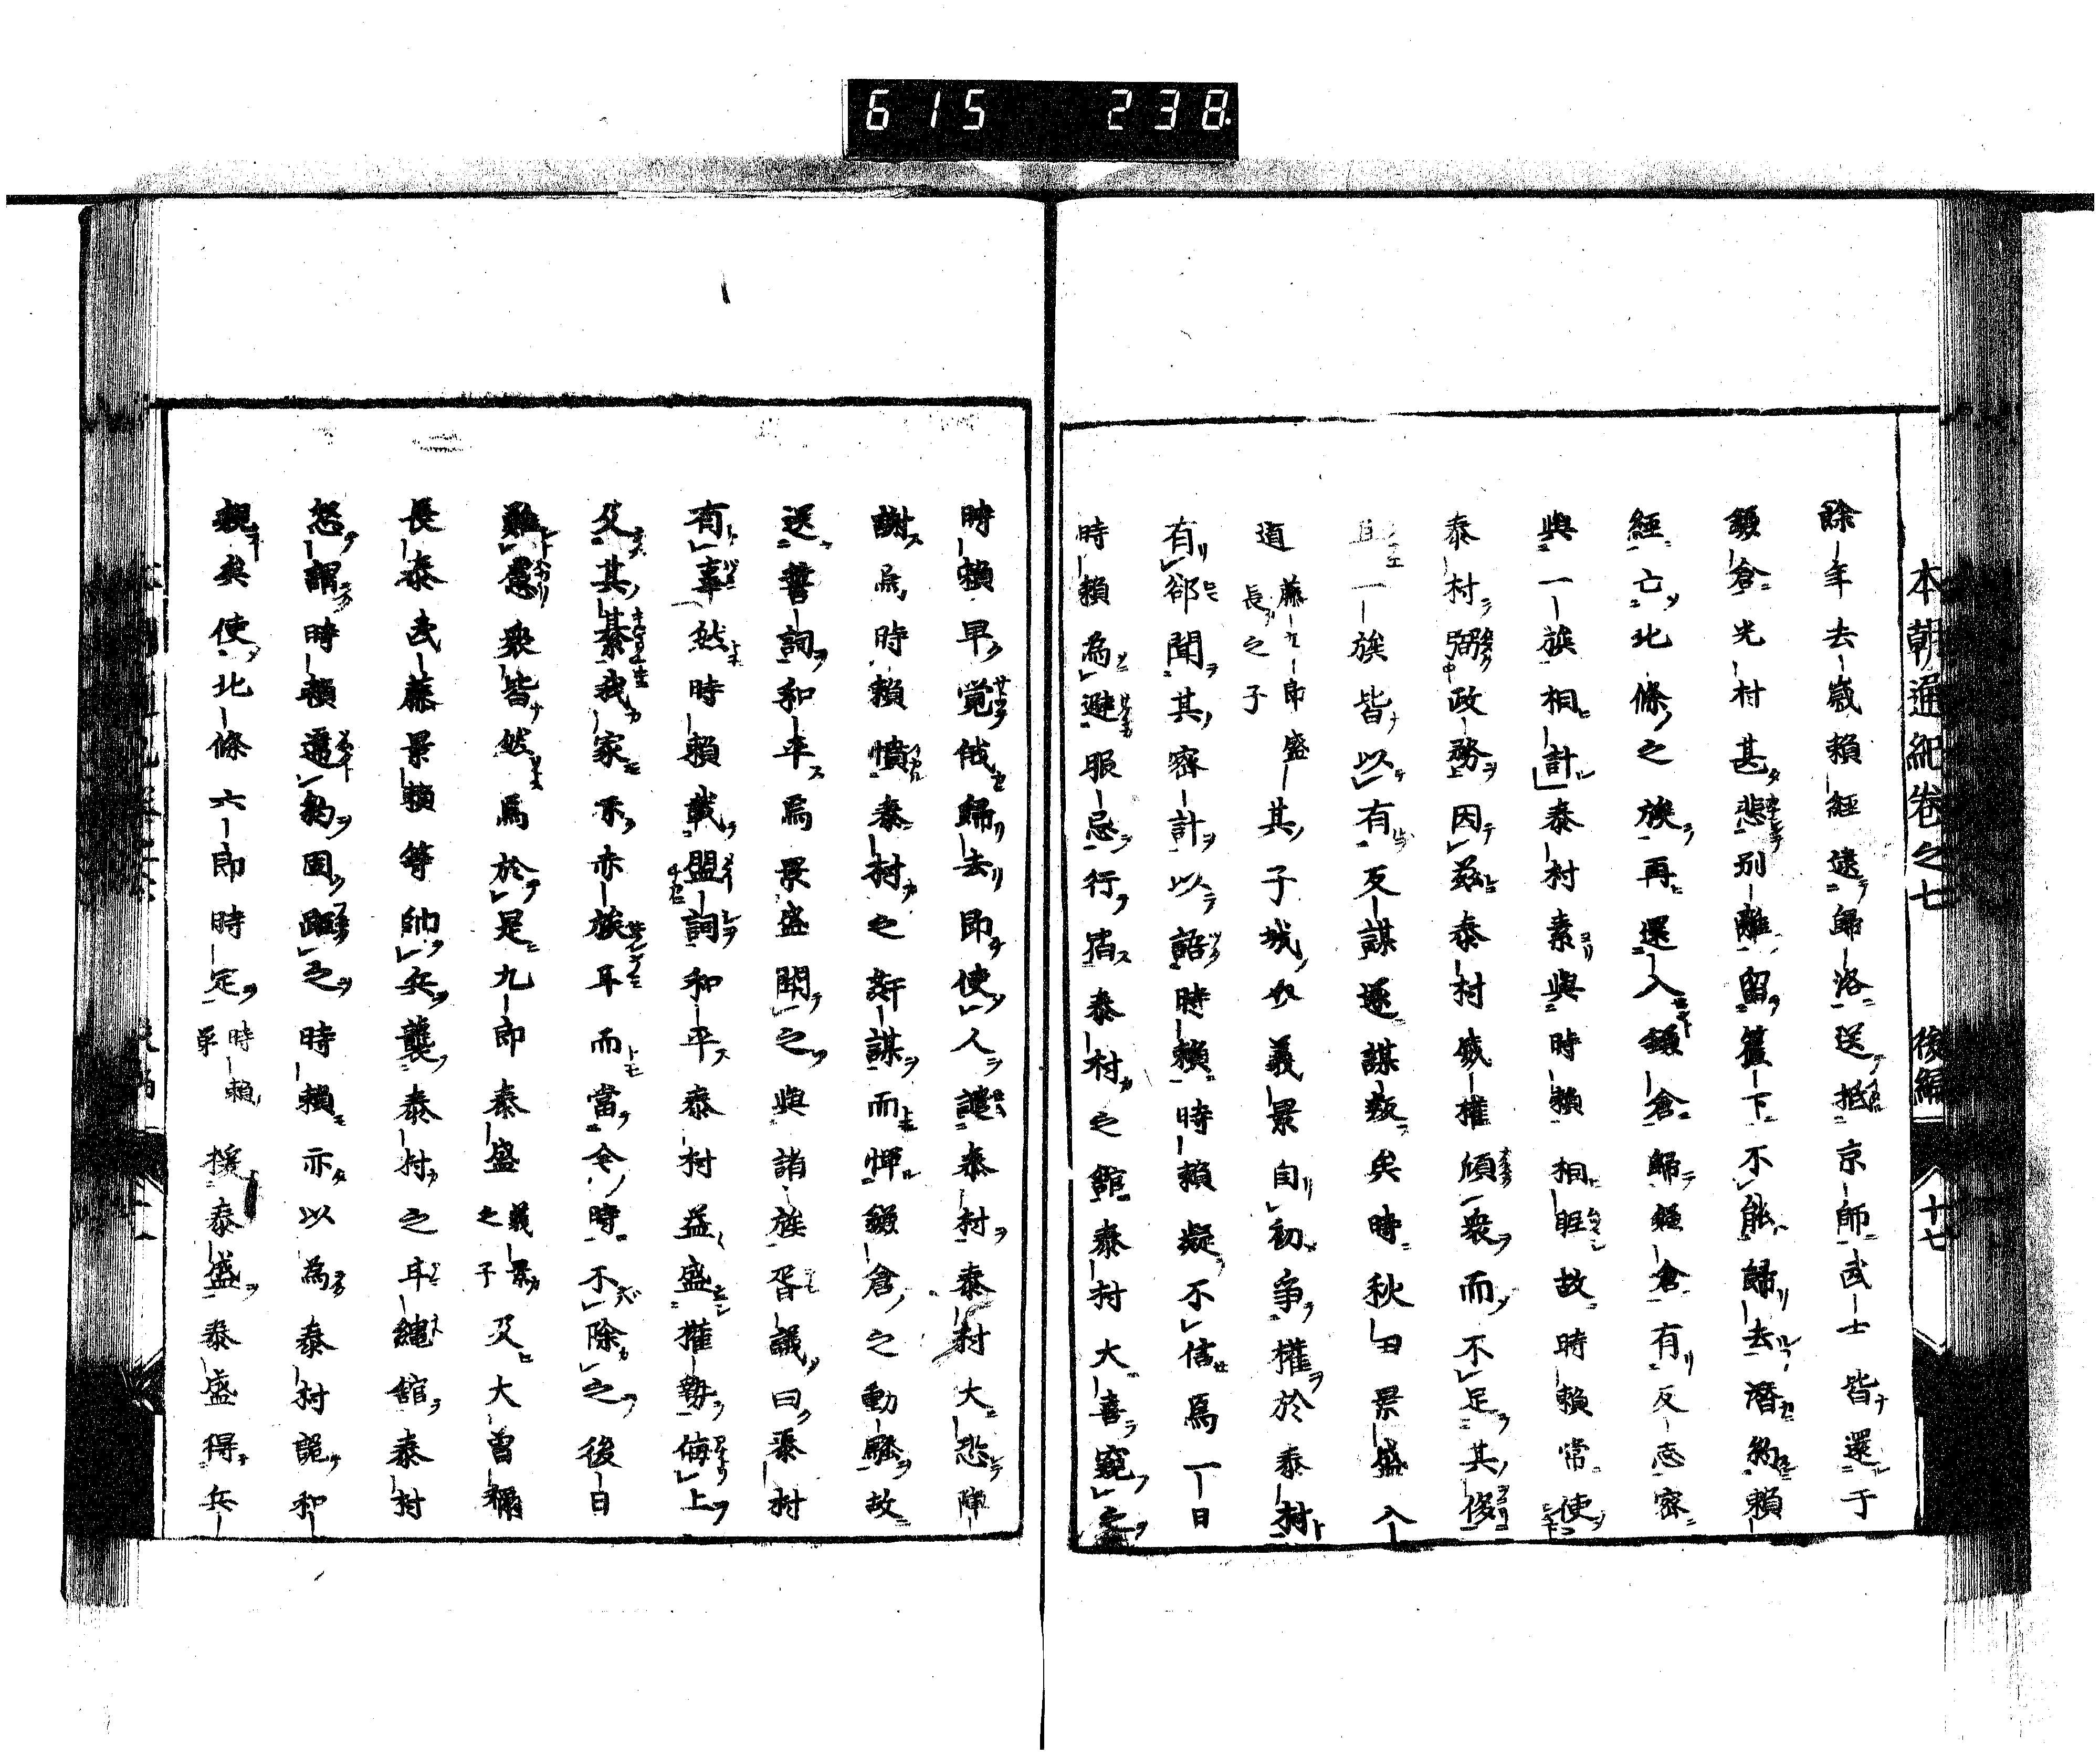 615 238
本朝通紀卷之七 後編 十七
餘年去歲賴經遠歸洛送抵京師武士皆還于
鎌倉光村甚悲別離留簾下不能歸去潛約賴
經亡北條之族再還入鎌倉歸鎌倉有反志密
與一族相計泰村素與時賴相眤故時賴常使
泰村弼政務因茲泰村威權傾衆而不足其侈
且一族皆以有反謀逐謀叛矣時秋田景盛入
道藤九郎盛長之子其子城奴義景自初爭權於泰村
有郤聞其密計以語時賴時賴疑不信焉一日
時賴為避服忌行宿泰村之館泰村大喜窺之
時賴早覚俄歸去即使人譴泰村泰村大恐陳
謝焉時賴憤泰村之奸謀而憚鎌倉之動騷故
送誓詞和平焉景盛聞之與諸族胥議曰泰村
有事然時賴載盟詞和平泰村益盛權勢侮上
及其綦我家不亦族耳而當今時不除之後日
難慮衆皆然焉於是九郎泰盛義景之子及大曽禰
長泰武藤景賴等帥兵襲泰村之耳纔館泰村
怒謂時賴還約固距之時賴亦以為泰村詭和
親矣使北條六郎時定時賴弟援泰盛泰盛得兵